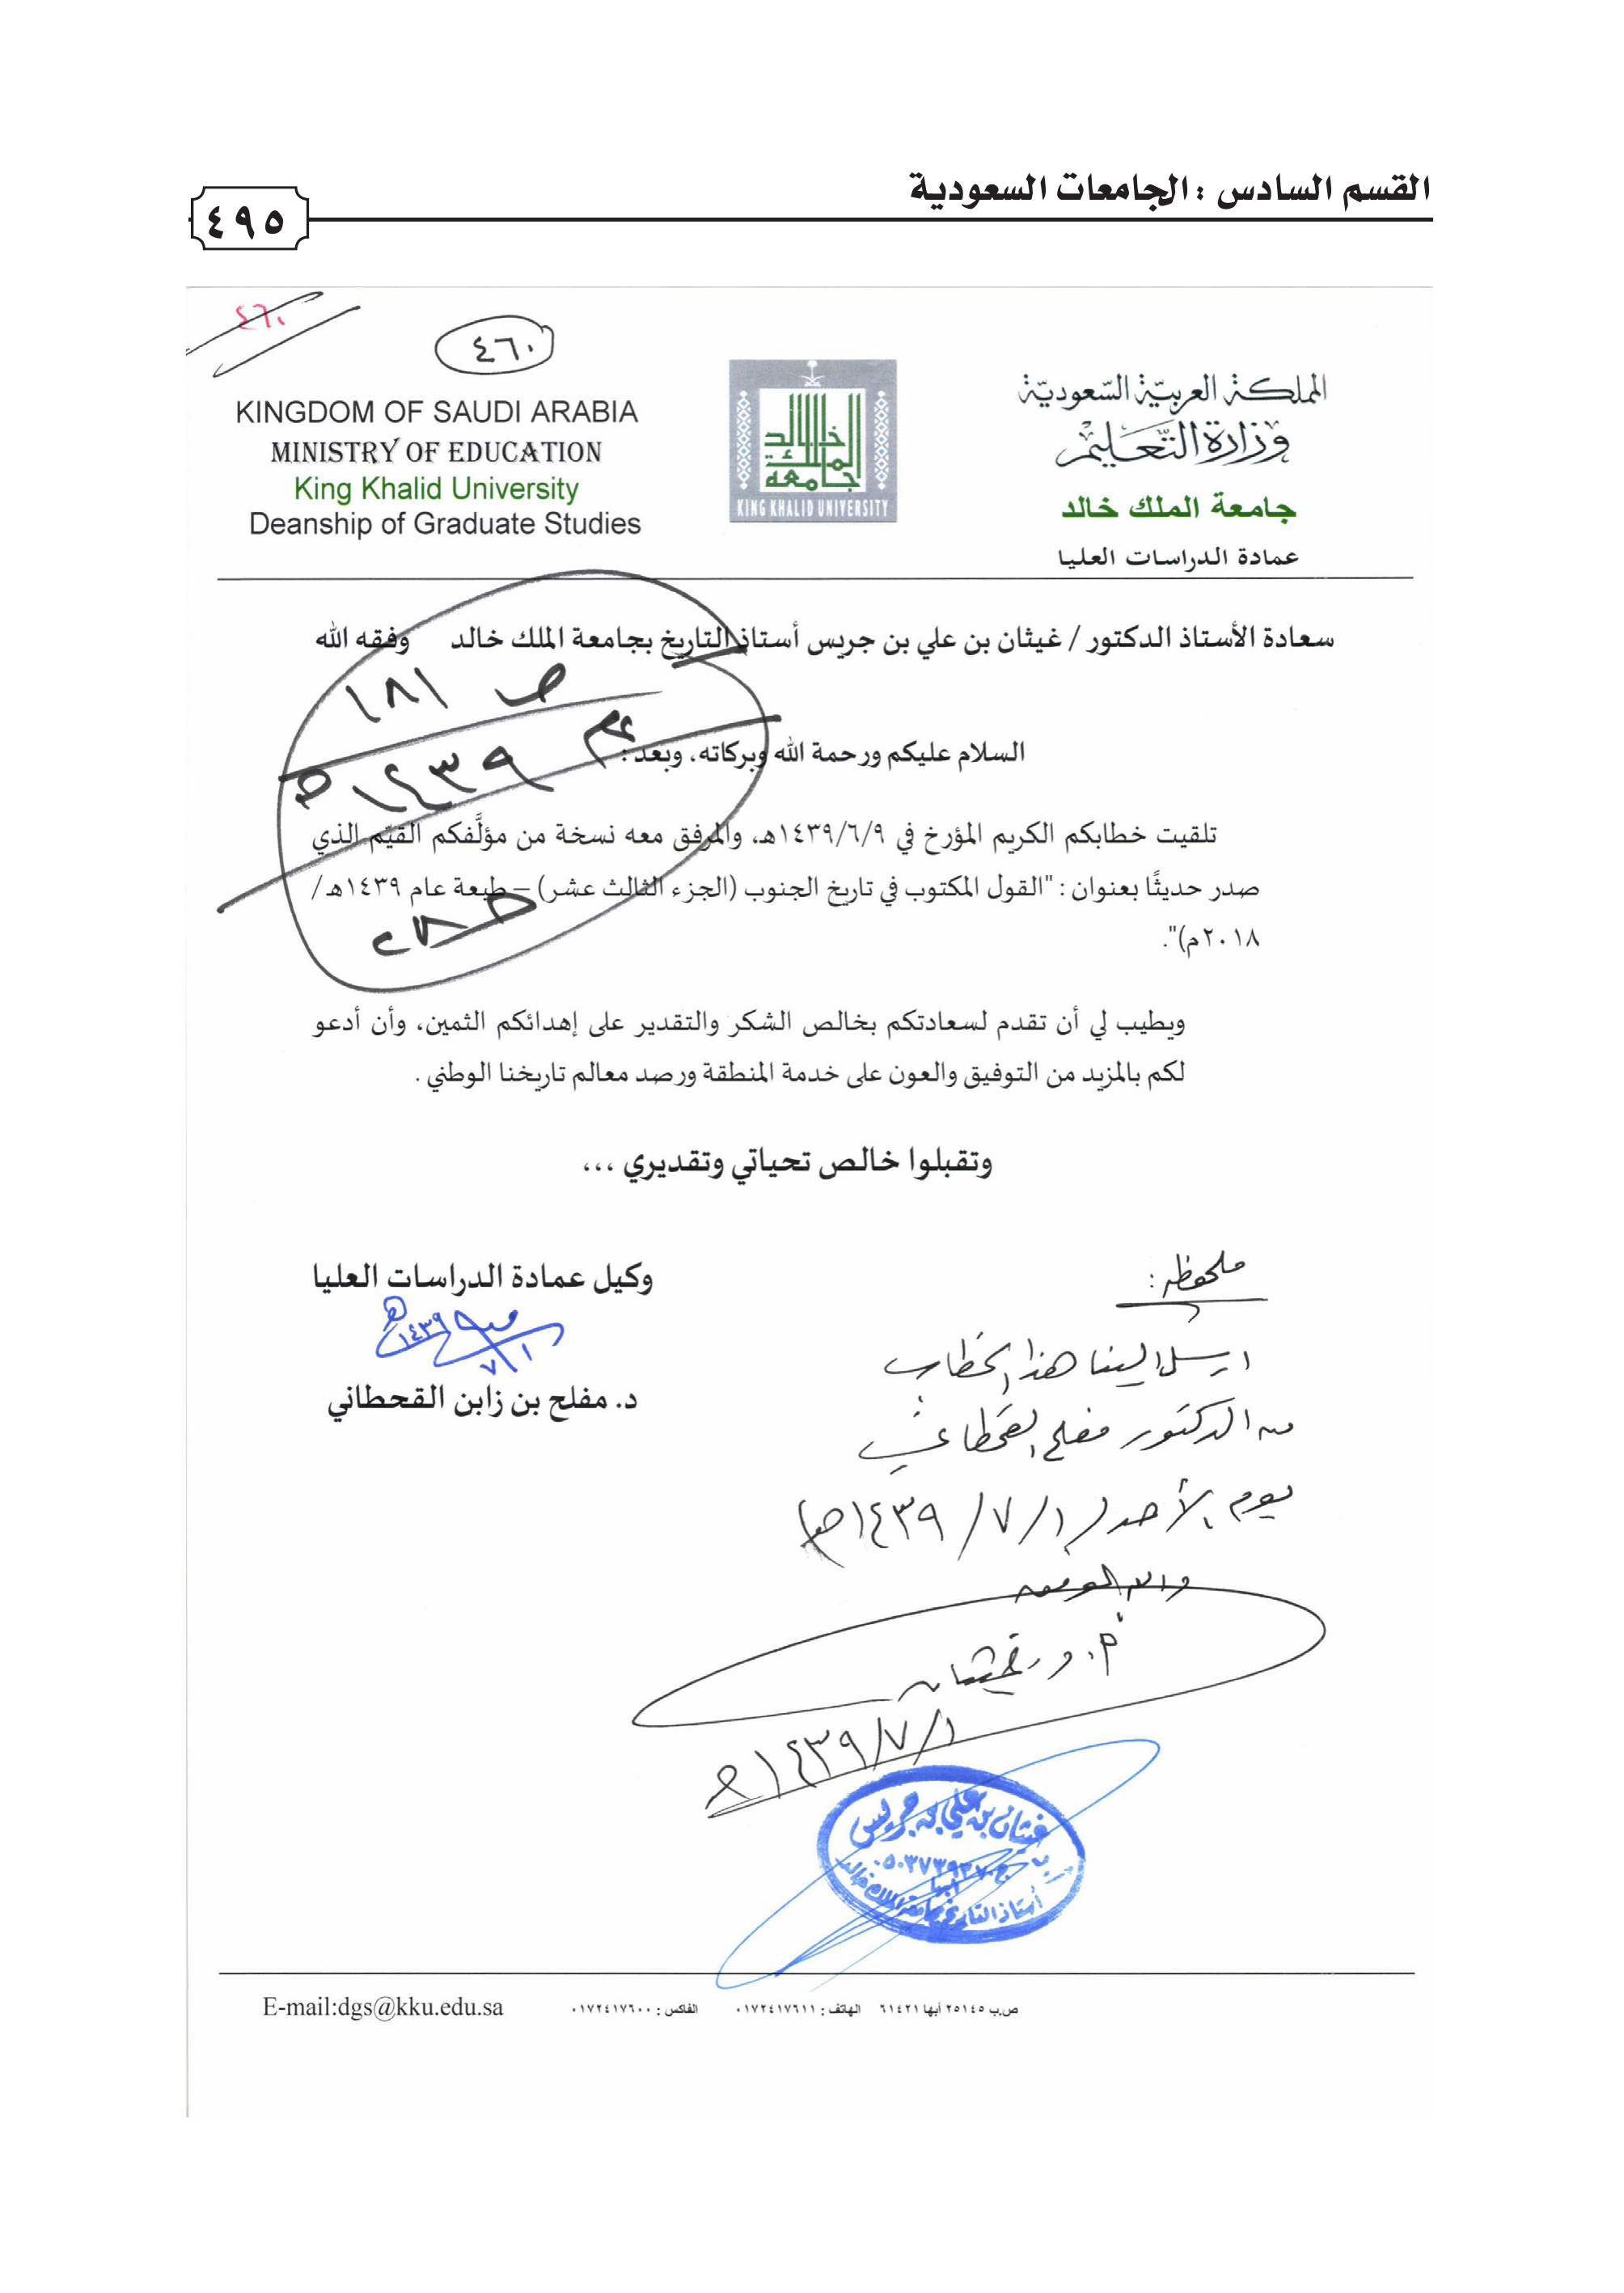 القسم السادس : الجامعات السعودية
٤٩٥
٤٦٠
٤٦٠
KINGDOM OF SAUDI ARABIA
MINISTRY OF EDUCATION
King Khalid University
Deanship of Graduate Studies
جامعة الملك خالد
KING KHALID UNIVERSITY
المملكة العربيّة السّعوديّة
وزارة التّعليم
جامعة الملك خالد
عمادة الدراسات العليا
سعادة الأستاذ الدكتور / غيثان بن علي بن جريس أستاذ التاريخ بجامعة الملك خالد وفقه الله
ص ١٨١
١٤٣٩ هـ
السلام عليكم ورحمة الله وبركاته، وبعد :
تلقيت خطابكم الكريم المؤرخ في ١٤٣٩/٦/٩هـ، والمرفق معه نسخة من مؤلَّفكم القيّم الذي
صدر حديثًا بعنوان : "القول المكتوب في تاريخ الجنوب (الجزء الثالث عشر) – طبعة عام ١٤٣٩هـ/
٢٠١٨م)".
ويطيب لي أن تقدم لسعادتكم بخالص الشكر والتقدير على إهدائكم الثمين، وأن أدعو
لكم بالمزيد من التوفيق والعون على خدمة المنطقة ورصد معالم تاريخنا الوطني .
وتقبلوا خالص تحياتي وتقديري ...
وكيل عمادة الدراسات العليا
١/٧ ١٤٣٩هـ
د. مفلح بن زابن القحطاني
ملحوظه :
ارسل الينا هذا الخطاب
من الدكتور مفلح القحطاني
يوم الأحد (١/٧/١٤٣٩هـ)
والله الموفق
أ.د. غيثان
١/٧/١٤٣٩هـ
غيثان بن علي بن جريس
أبها
أستاذ التاريخ بجامعة الملك خالد
E-mail:dgs@kku.edu.sa
ص.ب ٢٥١٤٥ أبها ٦١٤٢١ الهاتف : ٠١٧٢٤١٧٦١١ الفاكس : ٠١٧٢٤١٧٦٠٠